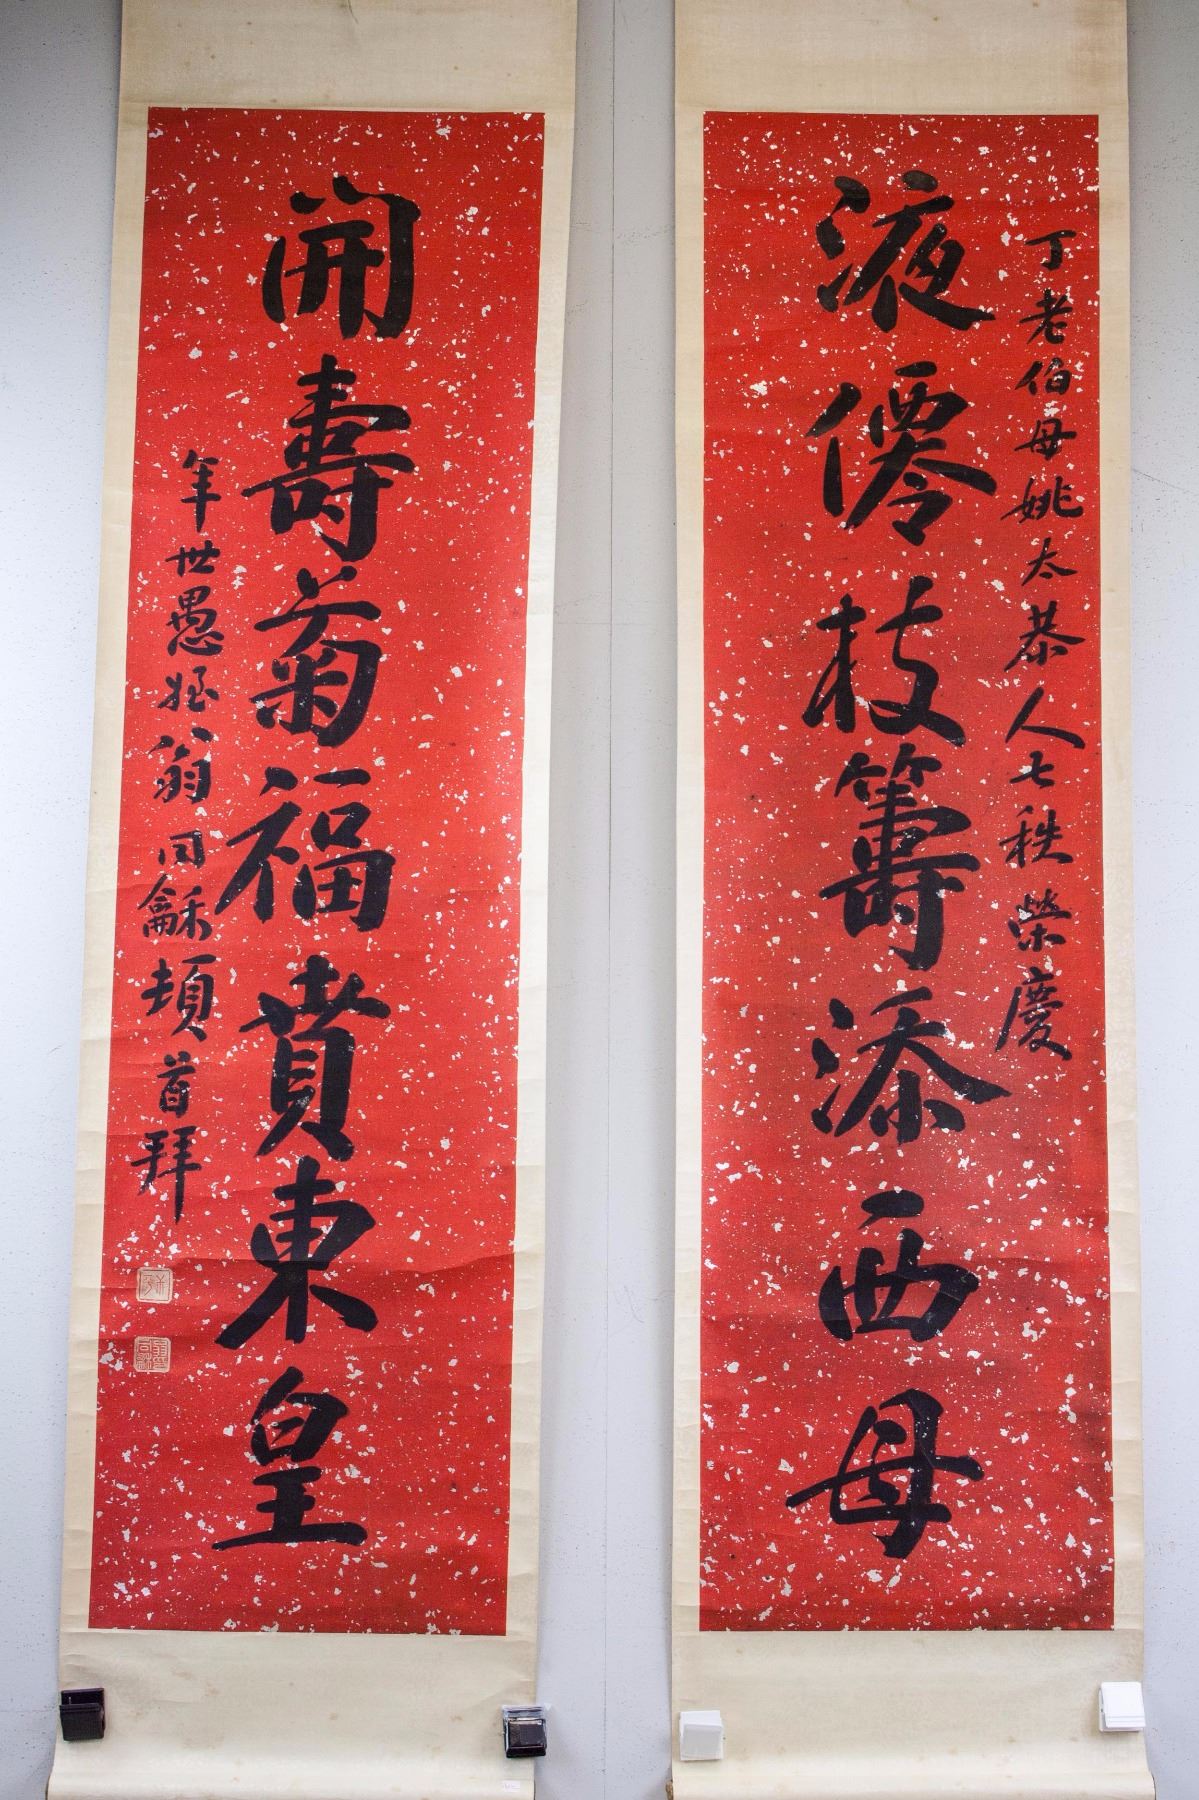 丁老伯母姚太恭人七秩榮慶
液僊枝籌添西母
開壽菊福賁東皇
年世愚姪翁同龢頓首拜